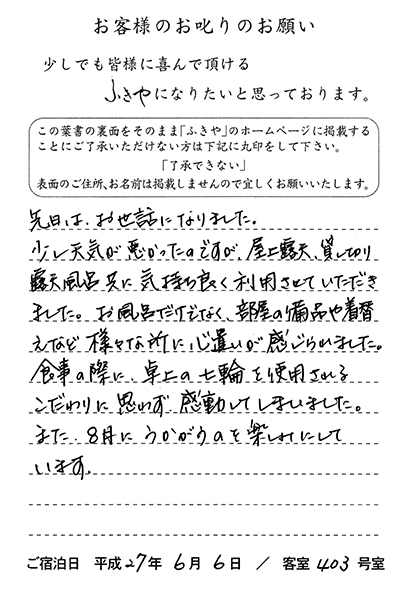 お客様のお叱りのお願い
少しでも皆様に喜んで頂ける
ふきやになりたいと思っております。
この葉書の裏面をそのまま「ふきや」のホームページに掲載する
ことにご了承いただけない方は下記に丸印をして下さい。
「了承できない」
表面のご住所、お名前は掲載しませんので宜しくお願いいたします。
先日は、お世話になりました。
少し天気が悪かったのですが、屋上露天、貸し切り
露天風呂共に気持ち良く利用させていただき
ました。お風呂だけでなく、部屋の備品や着替
えなど様々な所に心遣いが感じられました。
食事の際に、卓上の七輪を使用される
こだわりに思わず感動してしまいました。
また、8月にうかがうのを楽しみにして
います。
ご宿泊日 平成27年 6月 6日 / 客室 403 号室